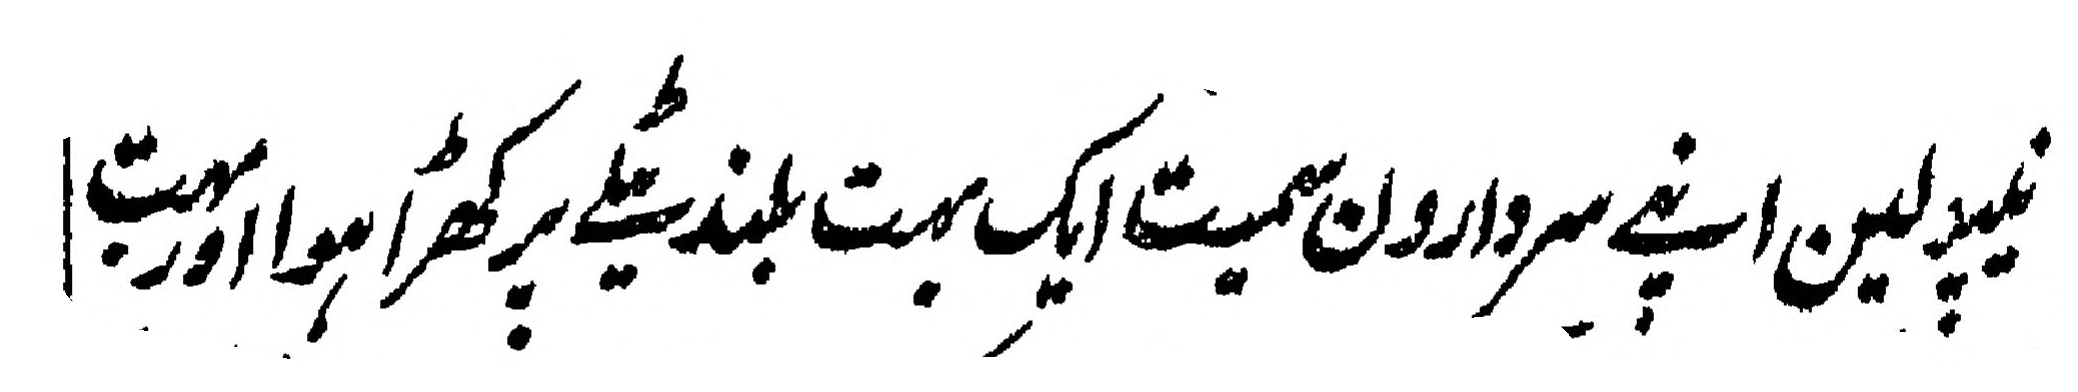 نیپولین اپنے سردارون سمیت ایک بہت بلند ٹیلے پر کھڑا ہوا اور بہت